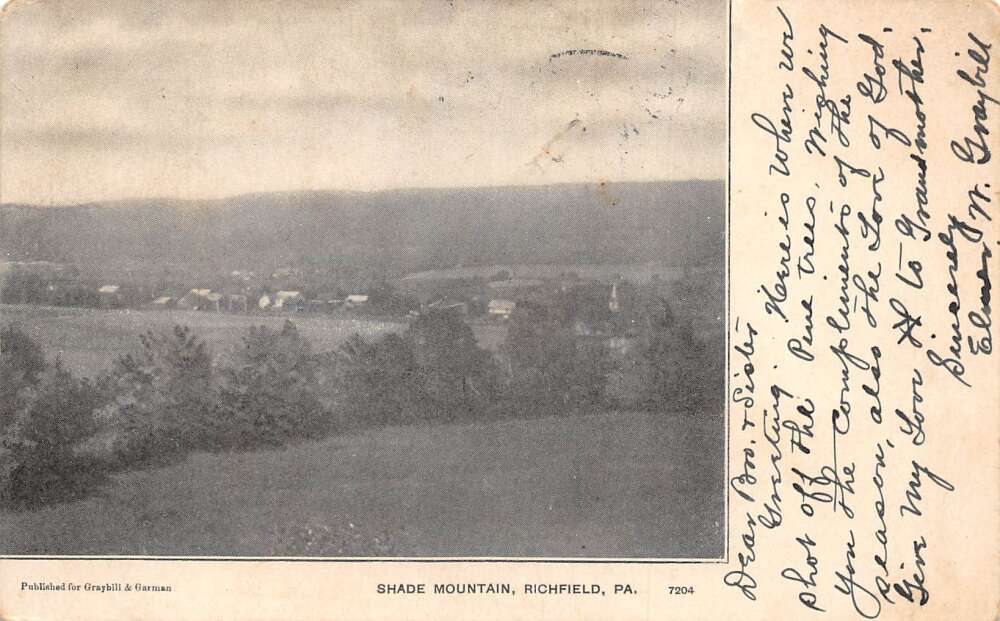 Dear Bro. & Sister
Greeting. Here is Where we
shot off the Pine trees, Wishing
you the Compliments of the
season, also the Love of God.
Give My Love to Grandmother,
Sincerely
Elmer W. Graybill
Published for Graybill & Garman
SHADE MOUNTAIN, RICHFIELD, PA.
7204